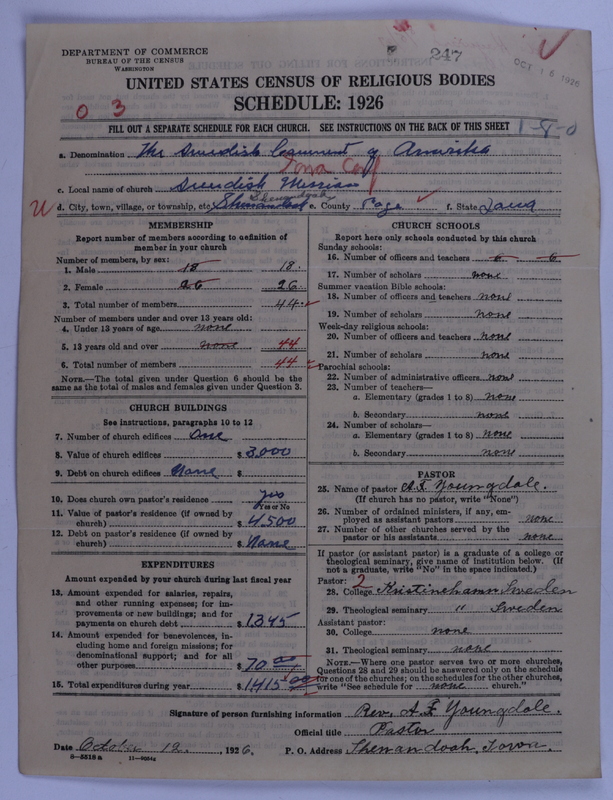 DEPARTMENT OF COMMERCE
BUREAU OF THE CENSUS
WASHINGTON
247
OCT 16 1926
UNITED STATES CENSUS OF RELIGIOUS BODIES
SCHEDULE: 1926
0 3
FILL OUT A SEPARATE SCHEDULE FOR EACH CHURCH. SEE INSTRUCTIONS ON THE BACK OF THIS SHEET
1-8-0
a. Denomination The Swedish
Iowa Conf
c. Local name of church Swedish Mission
d. City, town, village, or township, etc. Shenandoah e. County Page f. State Iowa
MEMBERSHIP
Report number of members according to definition of member in your church
Number of members, by sex:
1. Male 18 18.
2. Female 26 26.
3. Total number of members 44
Number of members under and over 13 years old:
4. Under 13 years of age none
5. 13 years old and over none 44
6. Total number of members 44
NOTE.—The total given under Question 6 should be the same as the total of males and females given under Question 3.
CHURCH BUILDINGS
See instructions, paragraphs 10 to 12
7. Number of church edifices One
8. Value of church edifices $ 3,000
9. Debt on church edifices None $
10. Does church own pastor's residence yes
Yes or No
11. Value of pastor's residence (if owned by church) $ 4,500
12. Debt on pastor's residence (if owned by church) $ None
EXPENDITURES
Amount expended by your church during last fiscal year
13. Amount expended for salaries, repairs, and other running expenses; for improvements or new buildings; and for payments on church debt $ 1345
14. Amount expended for benevolences, including home and foreign missions; for denominational support; and for all other purposes $ 70 00
15. Total expenditures during year $ 1415 00
CHURCH SCHOOLS
Report here only schools conducted by this church
Sunday schools:
16. Number of officers and teachers 6 6
17. Number of scholars none
Summer vacation Bible schools:
18. Number of officers and teachers none
19. Number of scholars none
Week-day religious schools:
20. Number of officers and teachers none
21. Number of scholars none
Parochial schools:
22. Number of administrative officers none
23. Number of teachers—
a. Elementary (grades 1 to 8) none
b. Secondary none
24. Number of scholars—
a. Elementary (grades 1 to 8) none
b. Secondary none
PASTOR
25. Name of pastor A. F. Youngdale.
(If church has no pastor, write "None")
26. Number of ordained ministers, if any, employed as assistant pastors none
27. Number of other churches served by the pastor or his assistants none
If pastor (or assistant pastor) is a graduate of a college or theological seminary, give name of institution below. (If not a graduate, write "No" in the space indicated.)
Pastor: 2
28. College Kristinehamn Sweden
29. Theological seminary " Sweden
Assistant pastor:
30. College none
31. Theological seminary none
NOTE.—Where one pastor serves two or more churches, Questions 28 and 29 should be answered only on the schedule for one of the churches; on the schedules for the other churches, write "See schedule for none church."
Signature of person furnishing information Rev. A. F. Youngdale.
Official title Pastor
Date October 12, 1926. P. O. Address Shenandoah, Iowa.